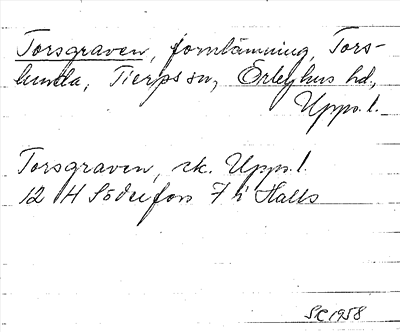 Torsgraven, fornlämning, Tors-
lunda, Tierps sn, Örbyhus hd,
Upps. l.
Torsgraven, rk. Upps. l.
12 H Söderfors 7 i Halls
SC 1958